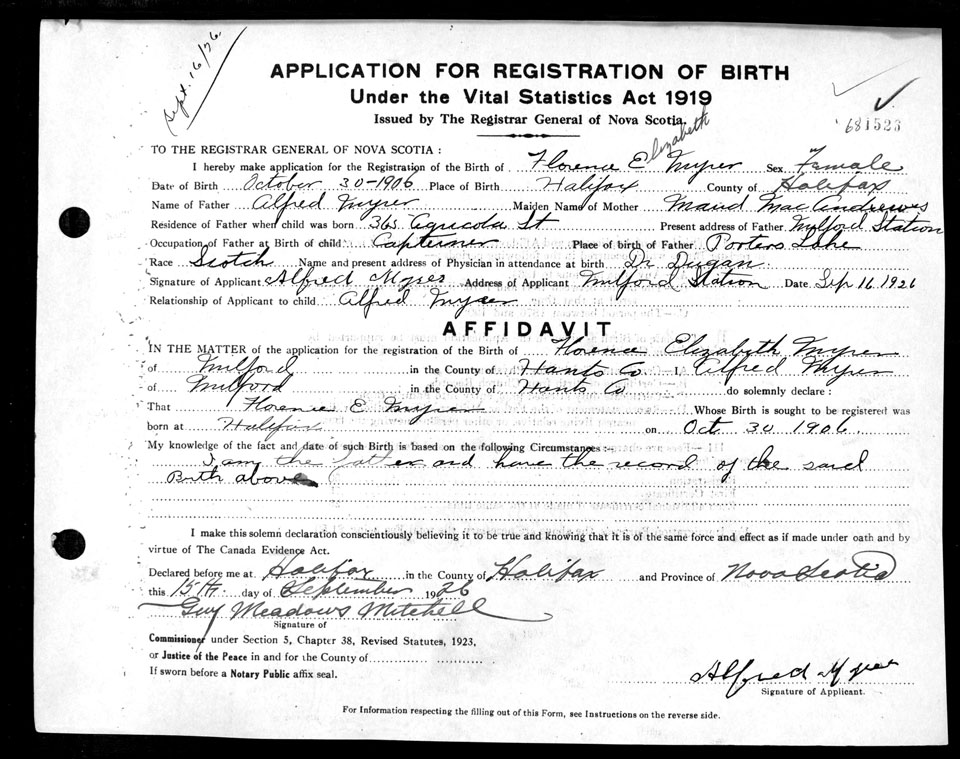 Sept. 16/26
APPLICATION FOR REGISTRATION OF BIRTH
Under the Vital Statistics Act 1919
Issued by The Registrar General of Nova Scotia.
681523
TO THE REGISTRAR GENERAL OF NOVA SCOTIA :
I hereby make application for the Registration of the Birth of Florence E Elizabeth Myrer Sex Female
Date of Birth October 30-1906 Place of Birth Halifax County of Halifax
Name of Father Alfred Myrer Maiden Name of Mother Maud MacAndrews
Residence of Father when child was born 365 Agricola St Present address of Father Milford Station
Occupation of Father at Birth of child Place of birth of Father Porters Lake
Race Scotch Name and present address of Physician in attendance at birth Dr Dugan
Signature of Applicant Alfred Myrer Address of Applicant Milford Station Date Sep 16 1926
Relationship of Applicant to child Alfred Myrer
AFFIDAVIT
IN THE MATTER of the application for the registration of the Birth of Florence Elizabeth Myrer
of Milford in the County of Hants Co I, Alfred Myrer
of Milford in the County of Hants Co do solemnly declare :
That Florence E Myrer Whose Birth is sought to be registered was
born at Halifax on Oct 30 1906
My knowledge of the fact and date of such Birth is based on the following Circumstances :—
I am the father and have the record of the said
Birth above
I make this solemn declaration conscientiously believing it to be true and knowing that it is of the same force and effect as if made under oath and by
virtue of The Canada Evidence Act.
Declared before me at Halifax in the County of Halifax and Province of Nova Scotia
this 15th day of September 1926
Guy Meadows Mitchell
Signature of
Commissioner under Section 5, Chapter 38, Revised Statutes, 1923,
or Justice of the Peace in and for the County of
If sworn before a Notary Public affix seal.
Alfred Myrer
Signature of Applicant.
For Information respecting the filling out of this Form, see Instructions on the reverse side.